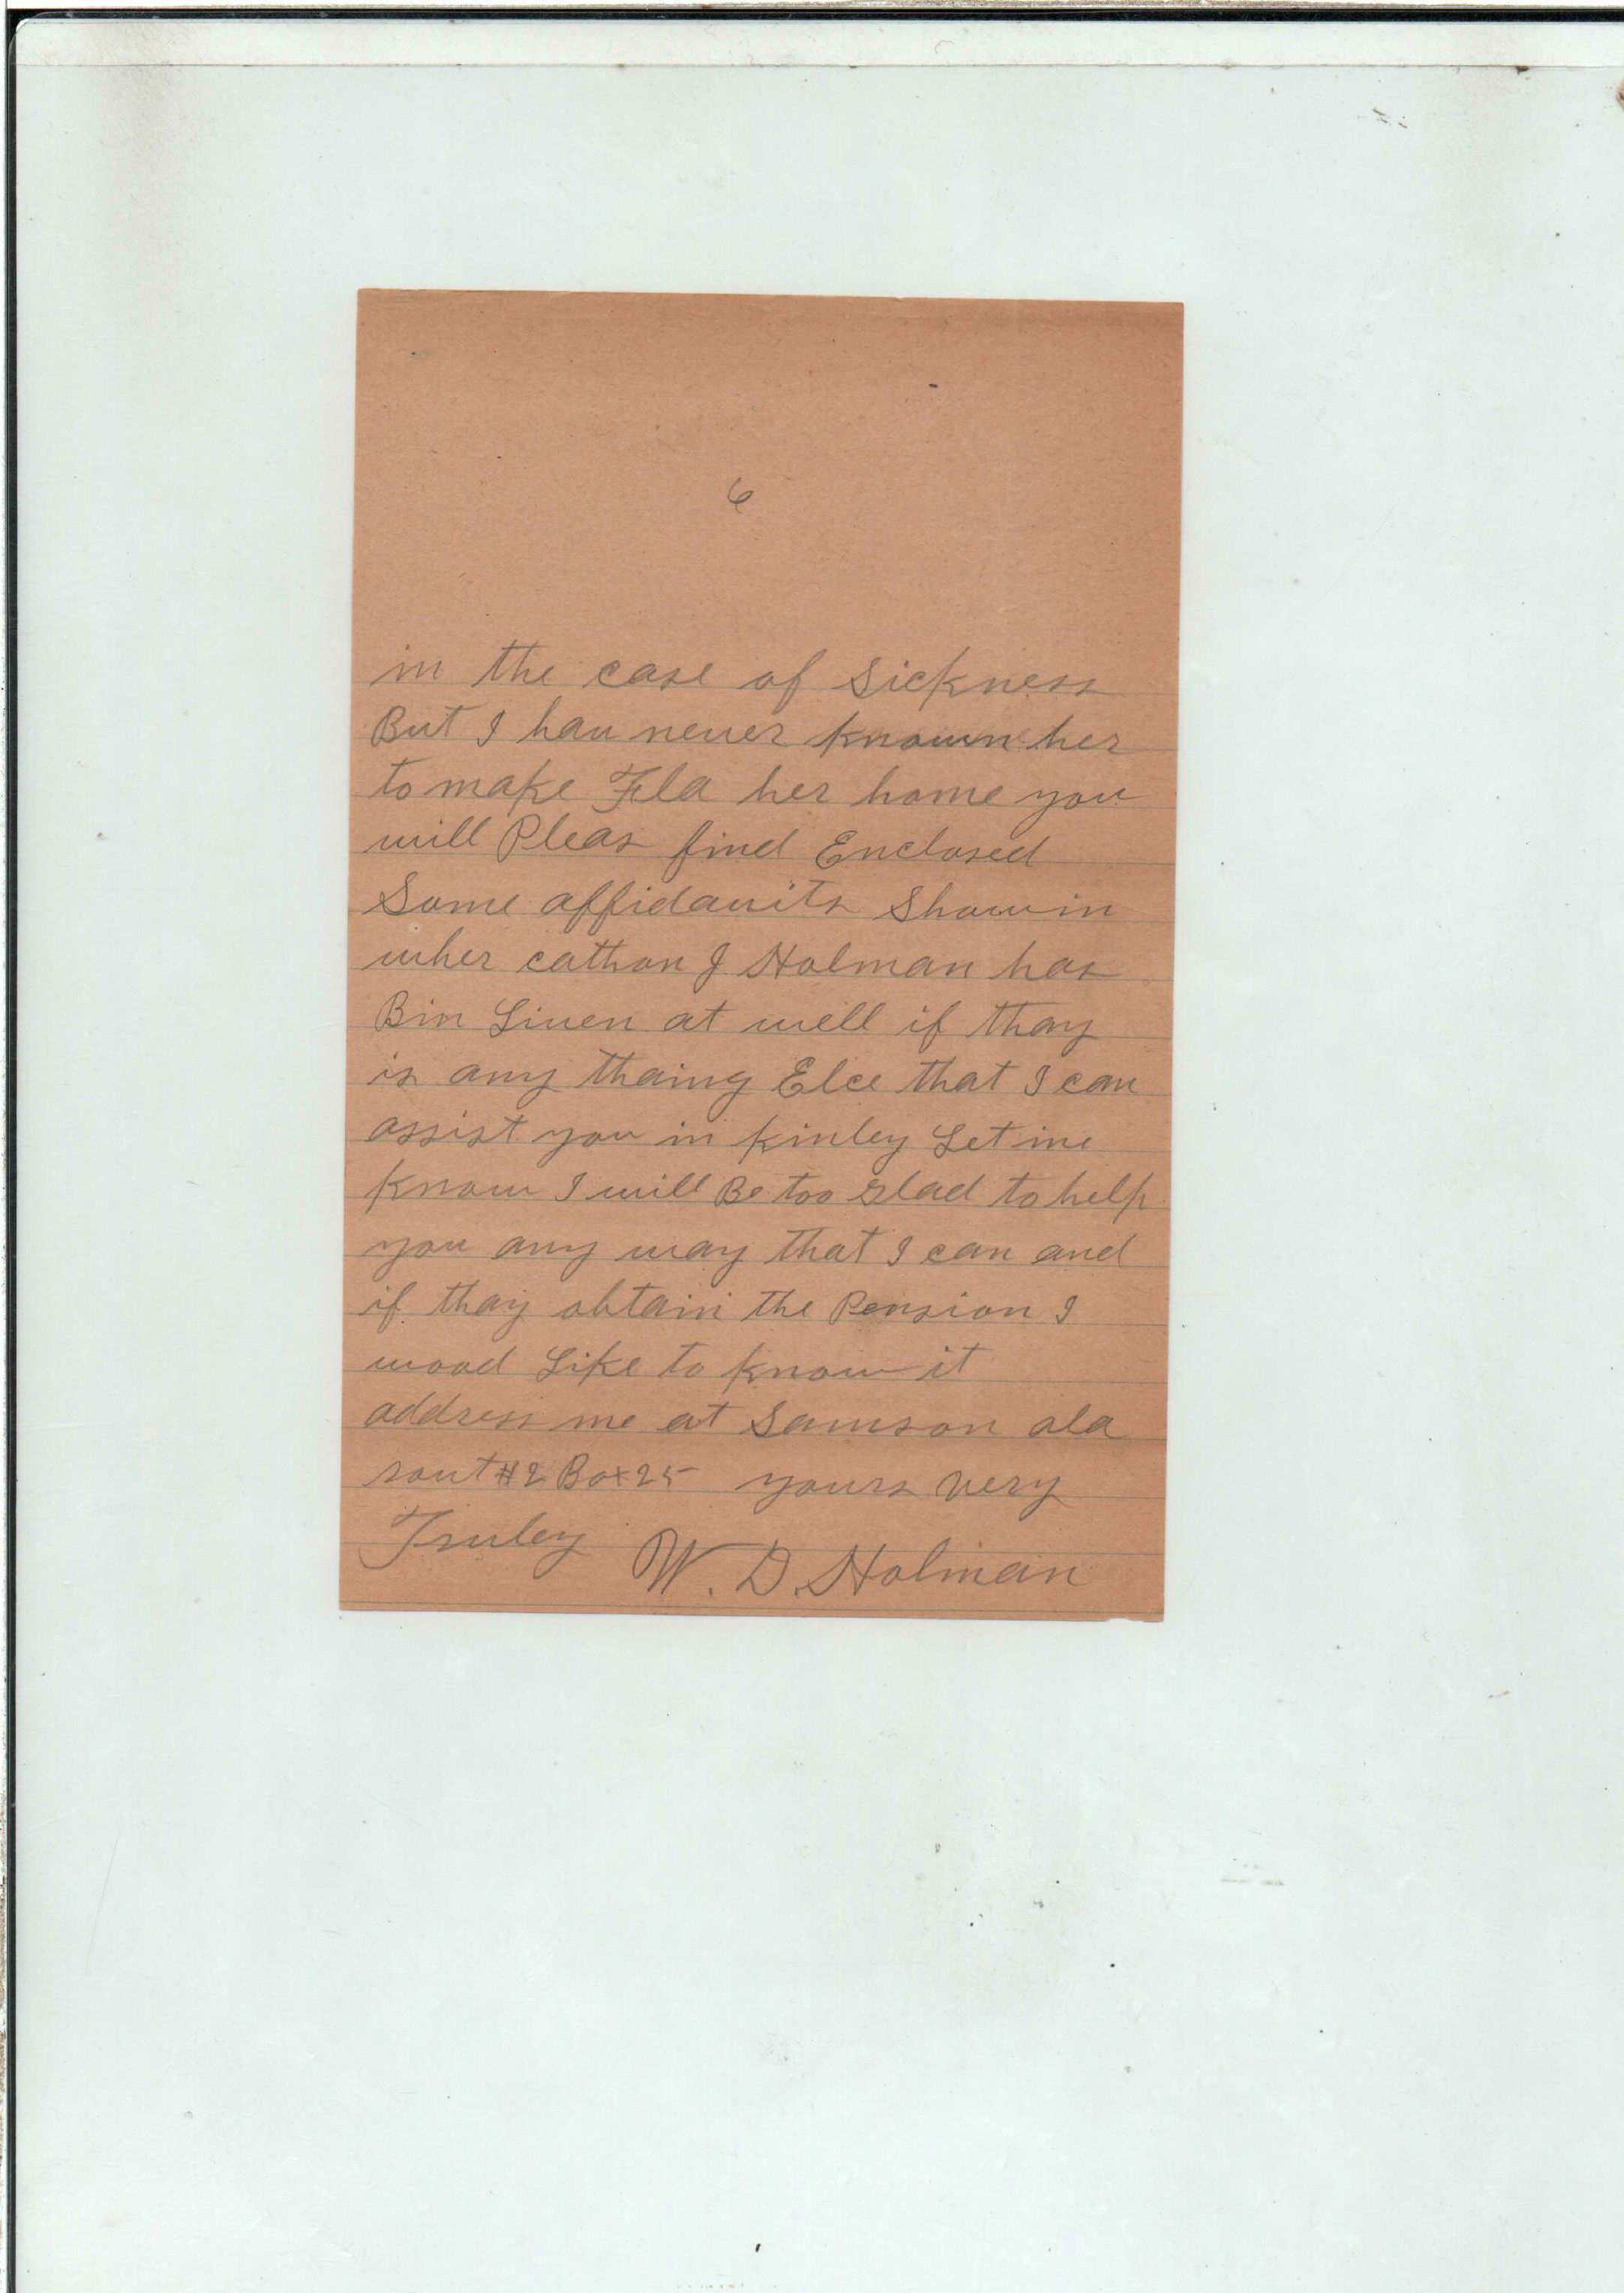 6
in the case of Sickness
But I hav never known her
to make Fla her home you
will Pleas find Enclosed
Some affidavits Showin
wher cathon J Holman has
Bin Liven at well if thay
is any thaing Elce that I can
assist you in kinley Let me
know I will Be too glad to help
you any way that I can and
if thay obtain the Pension I
wood Like to know it
address me at Samson ala
rout #2 Box 25 yours very
Truley W. D. Holman